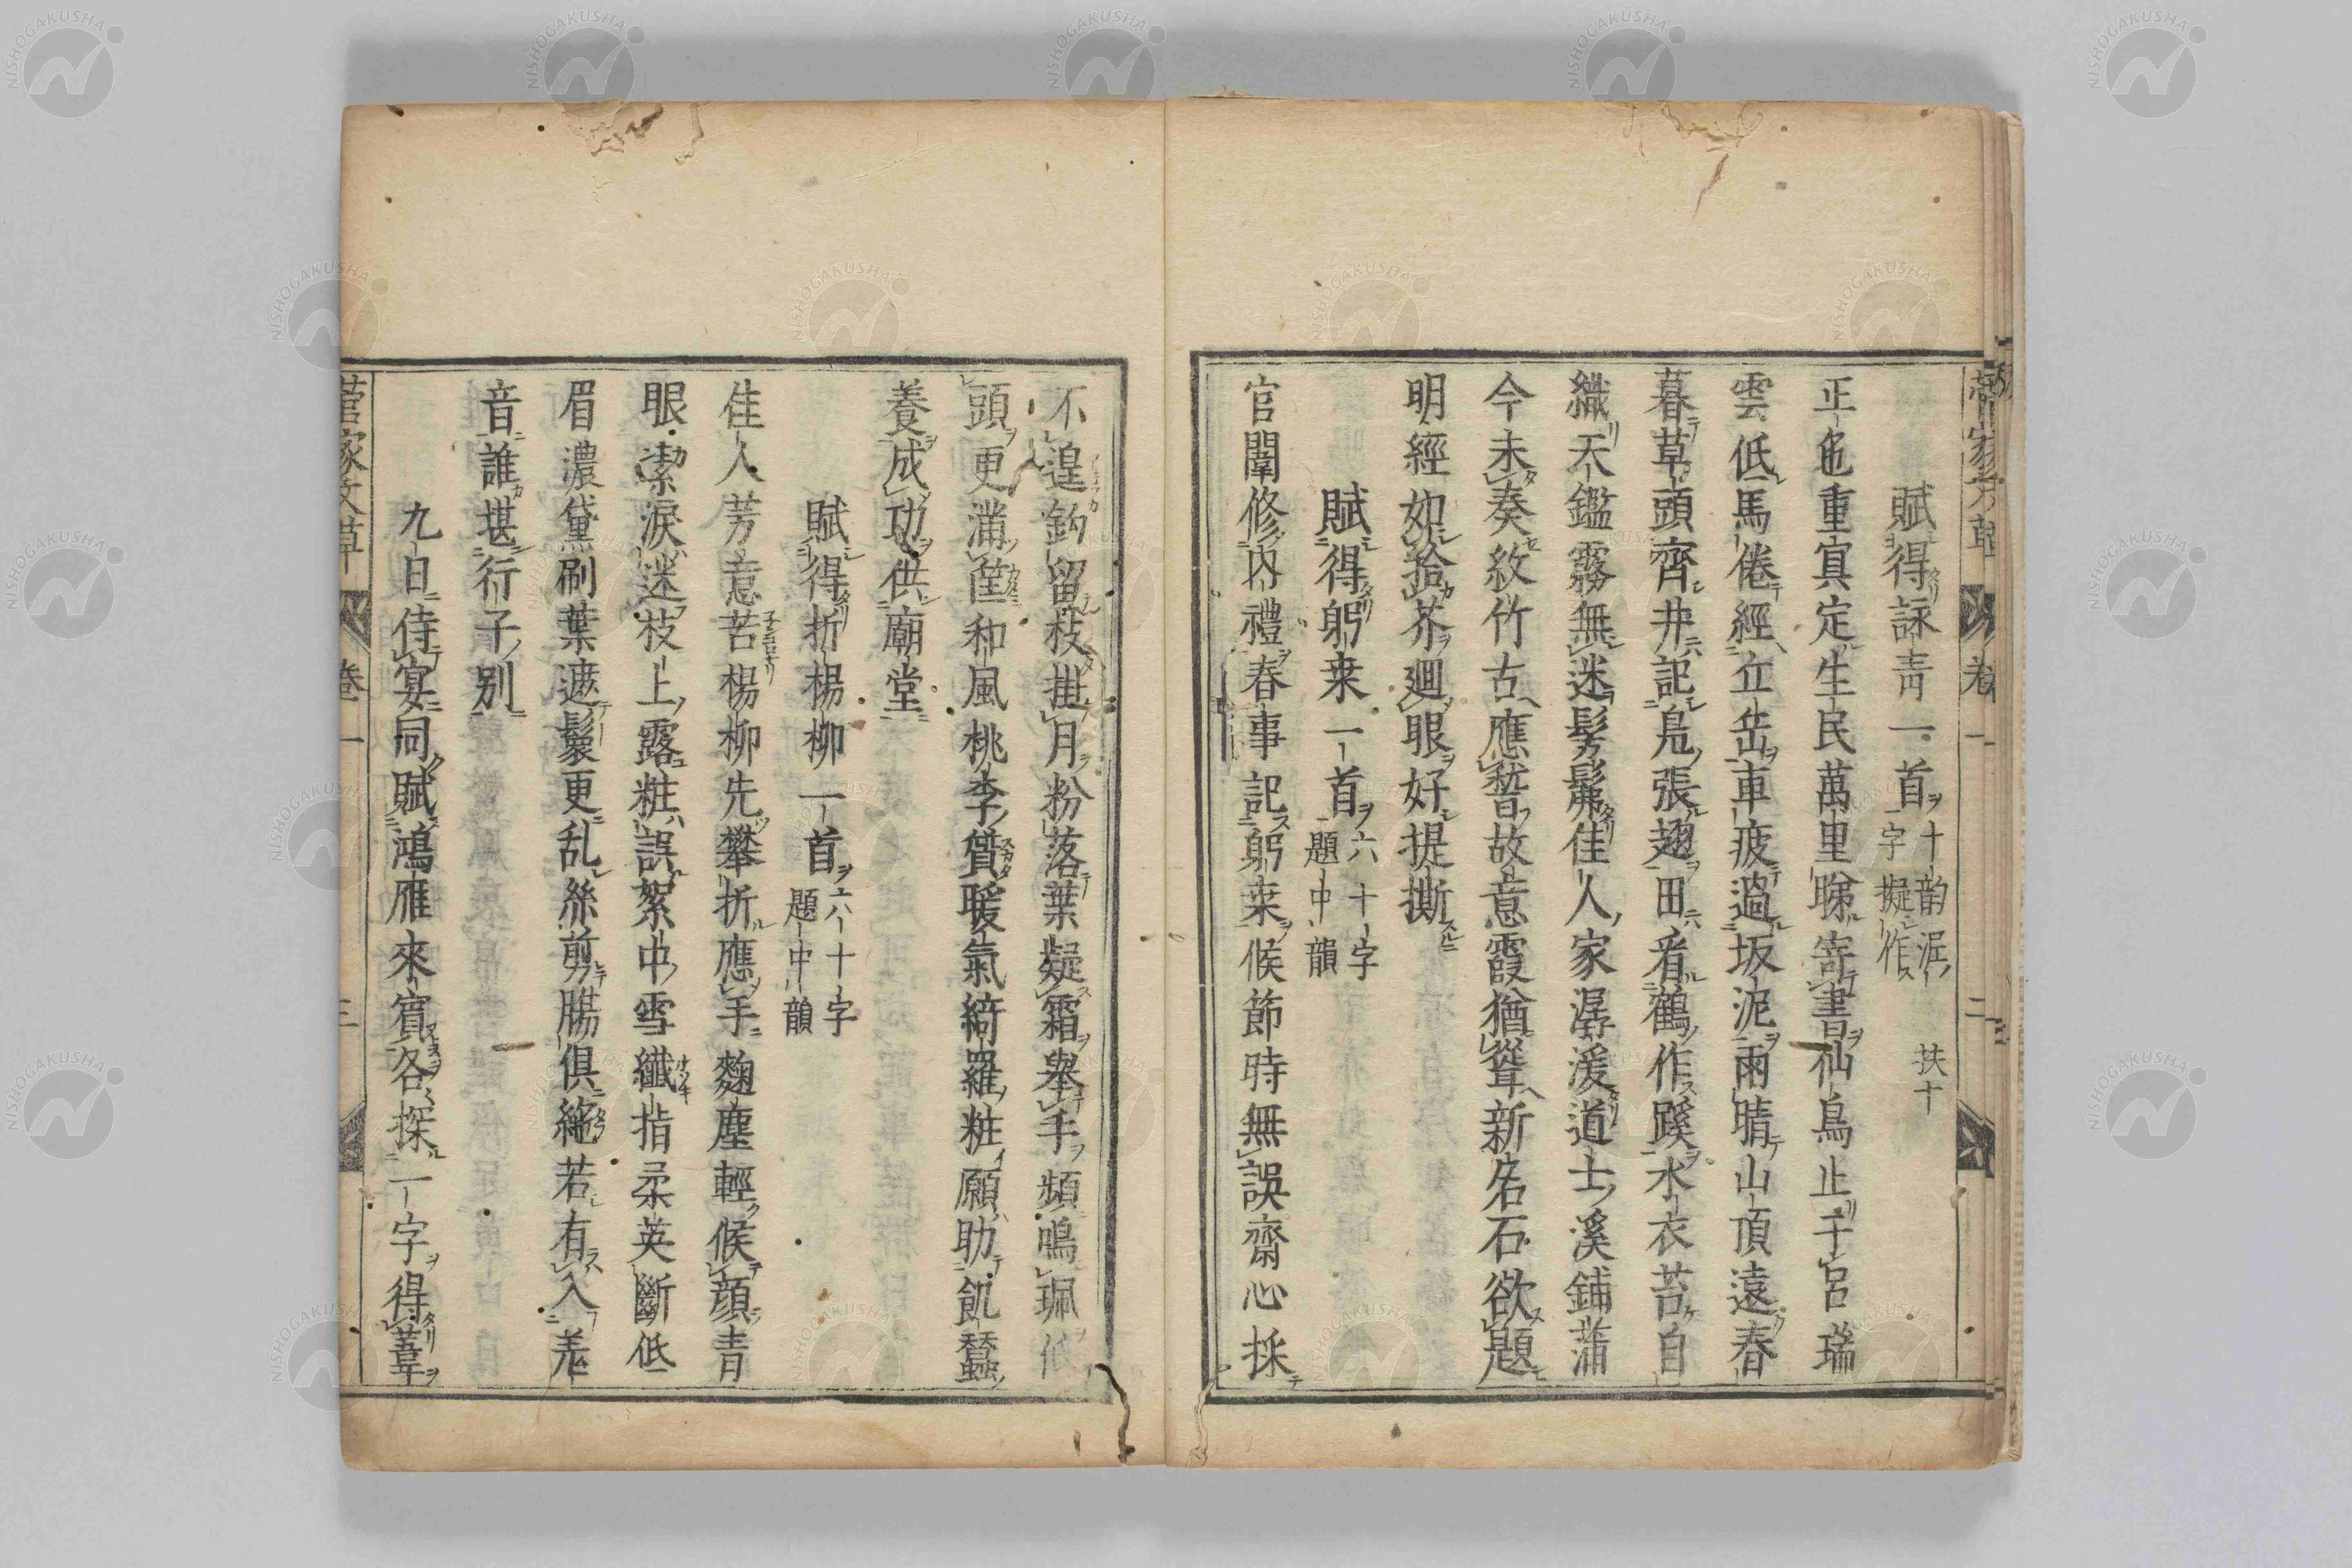 賦得詠青一首 十韵泯字擬作 扶十
正色重冥定生民萬里睇寄書仙鳥止千呂瑞
雲低馬倦經丘岳車疲過坂泥雨晴山頂遠春
暮草頭齊井記鳧張翅田看鶴作蹊水衣苔自
織天鑑霧無迷髣髴佳人家潺湲道士溪鋪蒲
今未奏紋竹古應瑿故意霞猶聳新名石欲題
明經如拾芥廻眼好提撕
賦得躬桒一首 六十字題中韻
官闈修内禮春事記躬桒候節時無誤齋心採
不遑鈎留枝掛月粉落葉凝霜舉手頻鳴珮低
頭更滿筐和風桃李質暖氣綺羅粧願助飢蠶
養成功供廟堂
賦得折楊柳一首 六十字題中韻
佳人芳意苦楊柳先攀折應手麴塵輕候顔青
眼潔淚迷枝上露粧誤絮中雪纖指柔英斷低
眉濃黛刷葉遮鬟更乱絲剪腸俱絕若有入羌
音誰堪行子別
九日侍宴同賦鴻雁來賓各探一字得葦
菅家文草 卷一 二
菅家文草 卷一 三
NISHOGAKUSHA